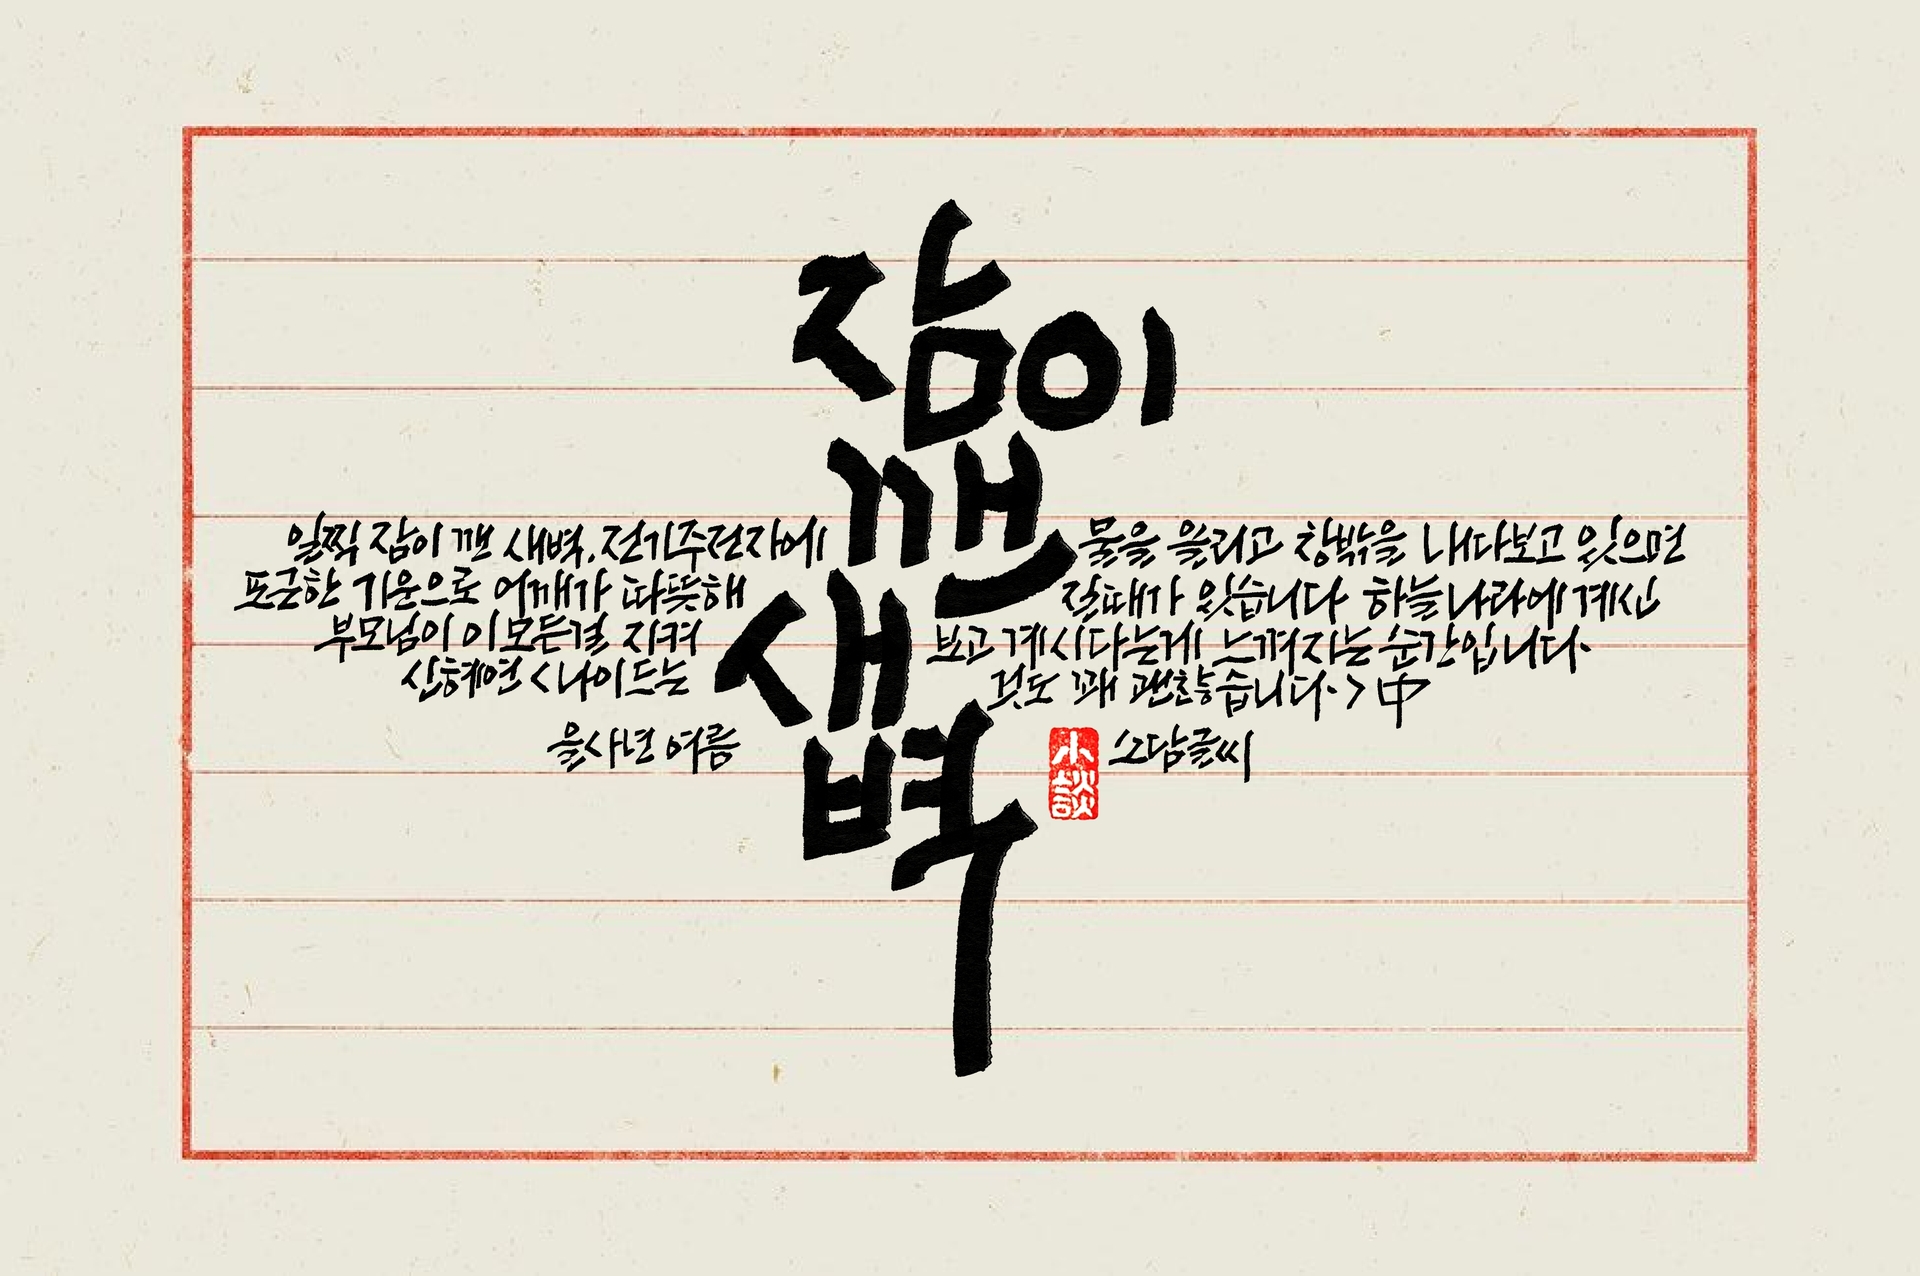 잠이
깬
새
벽
일찍 잠이 깬 새벽. 전기주전자에 물을 올리고 창밖을 내다보고 있으면
포근한 기운으로 어깨가 따뜻해 질때가 있습니다 하늘나라에 계신
부모님이 이 모든걸 지켜 보고 계시다는게 느껴지는 순간입니다.
신혜연 <나이드는 것도 꽤 괜찮습니다.> 中
을사년 여름 소담글씨
小談